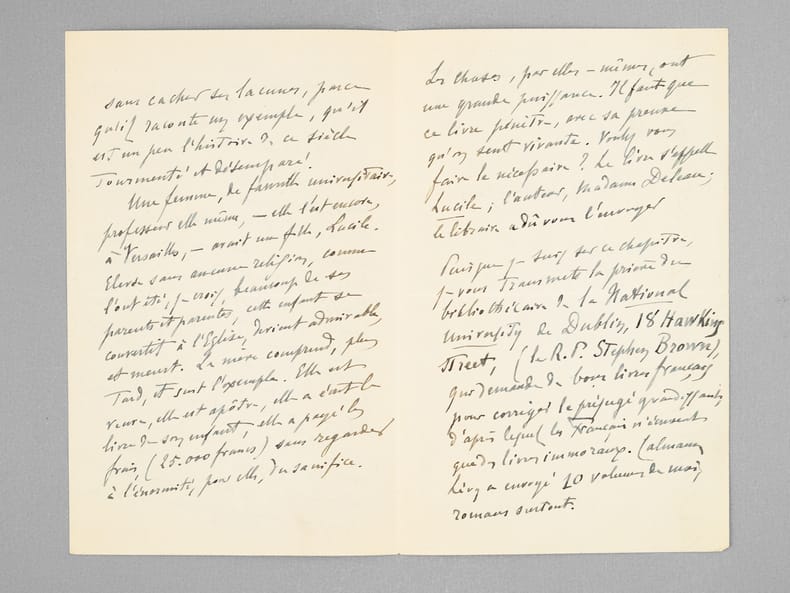 sans cacher ses lacunes, parce
qu'il raconte un exemple, qu'il
est un peu l'histoire de ce siècle
tourmenté et désemparé.
Une femme, de famille universitaire,
professeur elle même, — elle l'est encore,
à Versailles, — avait une fille, Lucile.
Elevée sans aucune religion, comme
l'ont été, je crois, beaucoup de ses
parents et parentes, cette enfant se
convertit à l'Eglise, devient admirable,
et meurt. La mère comprend, plus
tard, et suit l'exemple. Elle est
veuve, elle est apôtre, elle a écrit le
livre de son enfant, elle a payé les
frais, (25.000 francs) sans regarder
à l'énormité, pour elle, du sacrifice.
Les choses, par elles-mêmes, ont
une grande puissance. Il faut que
ce livre pénètre, avec sa preuve
qu'on sent vivante. Voulez vous
faire le nécessaire ? Le livre s'appelle
Lucile ; l'auteur, Madame Deleau ;
le libraire a dû vous l'envoyer
Puisque je suis sur ce chapitre,
je vous transmets la prière du
bibliothécaire de la National
University de Dublin, 18 Hawkins
Street, (le R.P. Stephen Brown),
qui demande de bons livres français
pour corriger le préjugé grandissant,
d'après lequel les Français n'écrivent
que des livres immoraux. Calmann
Lévy a envoyé 10 volumes de moi,
romans surtout.